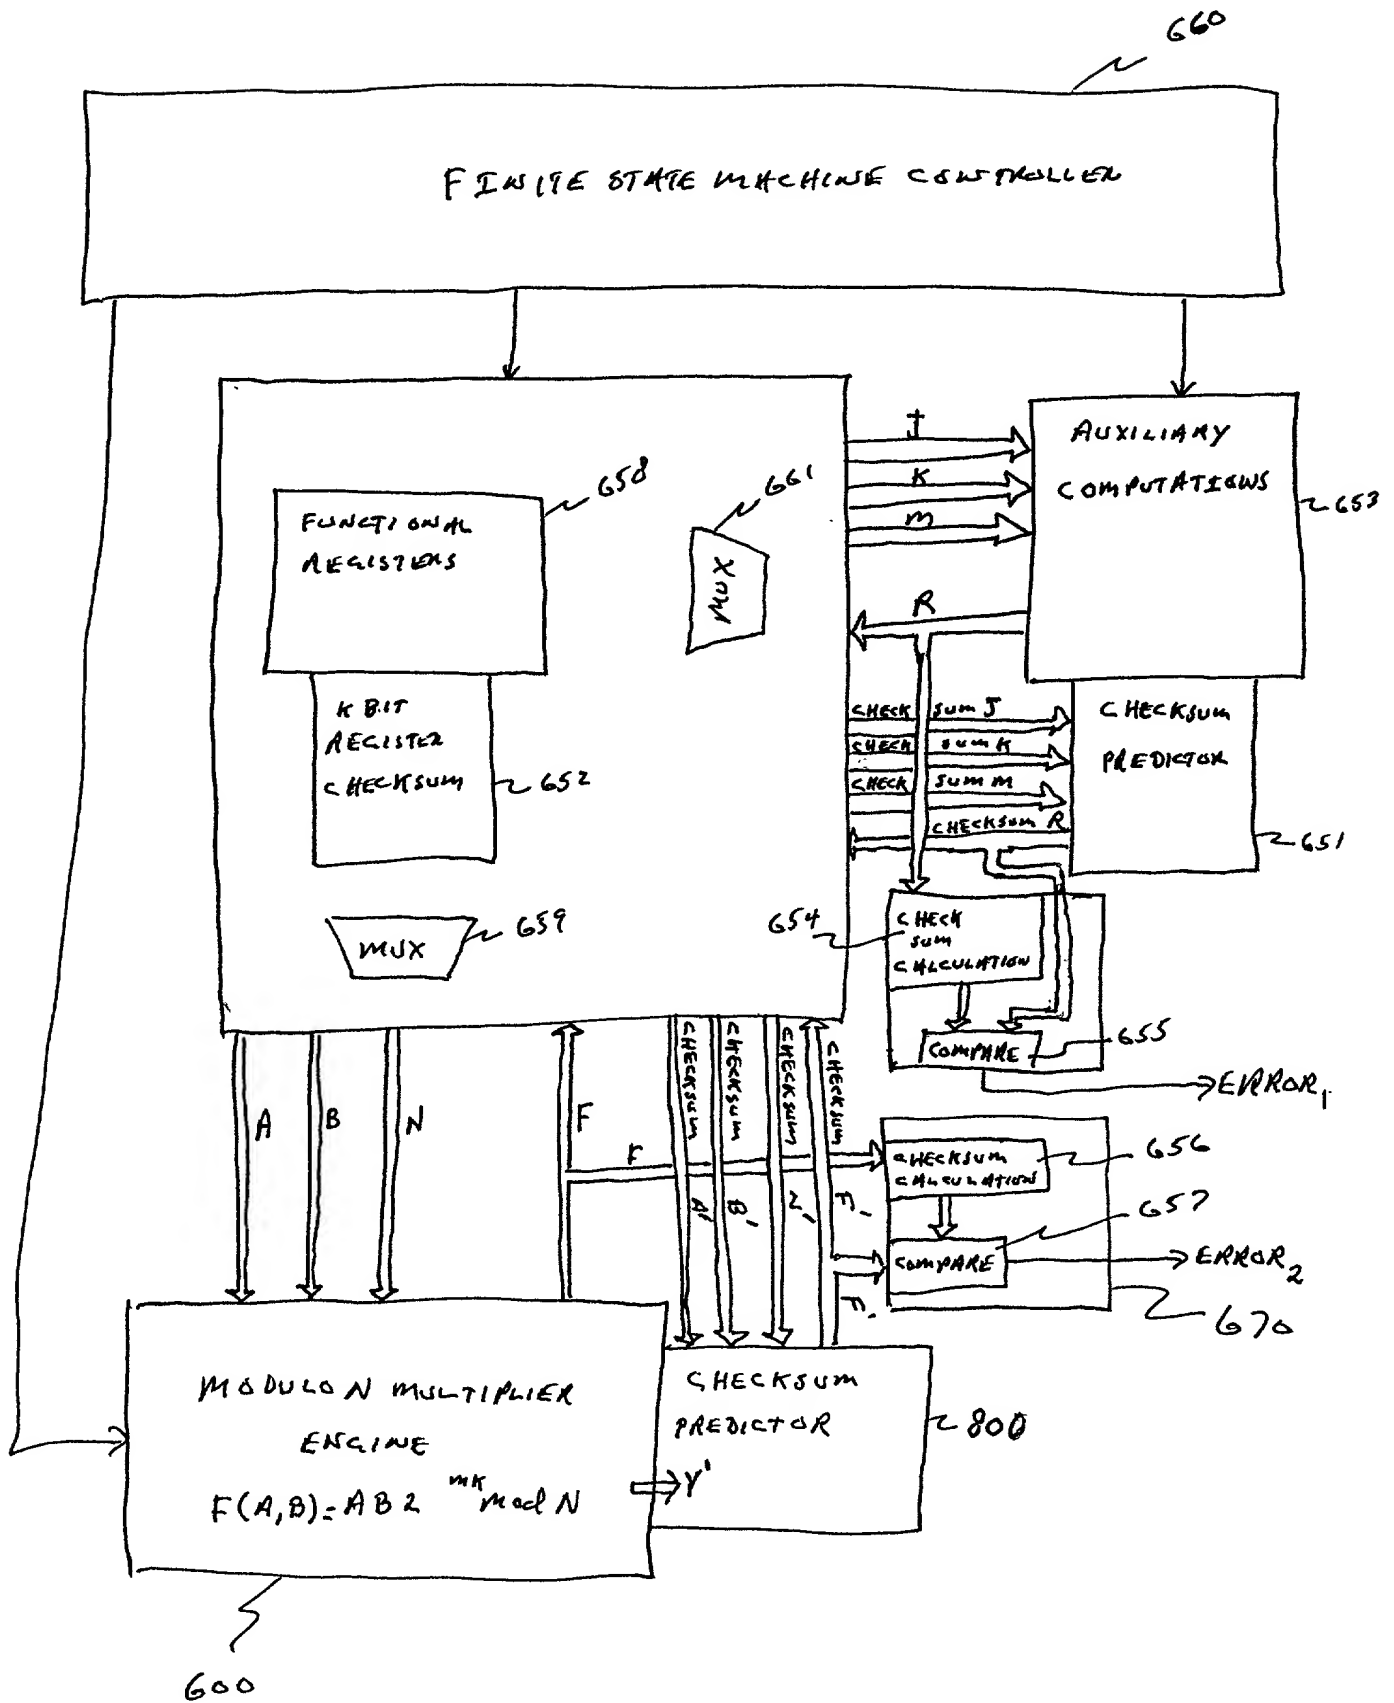 660
FINITE STATE MACHINE CONTROLLER
J
AUXILIARY
COMPUTATIONS
653
K
M
658
661
FUNCTIONAL
REGISTERS
MUX
R
K BIT
REGISTER
CHECKSUM
652
CHECK SUM J
CHECK SUM K
CHECK SUM M
CHECKSUM R
CHECKSUM
PREDICTOR
651
MUX
659
654
CHECK
SUM
CALCULATION
COMPARE
655
ERROR1
A
B
N
F
F
CHECKSUM A'
CHECKSUM B'
CHECKSUM N'
CHECKSUM F'
CHECKSUM
CALCULATION
656
657
COMPARE
ERROR2
F'
670
MODULO N MULTIPLIER
ENGINE
F(A,B)=AB2^mk mod N
Y'
CHECKSUM
PREDICTOR
800
600